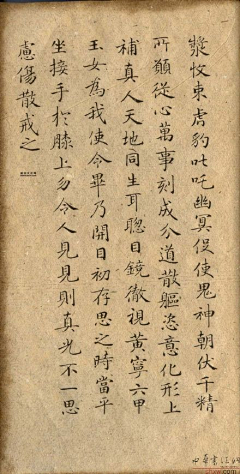 漿牧束虎豹叱吒幽冥役使鬼神朝伏千精
所願從心萬事刻成分道散軀恣意化形上
補真人天地同生耳聰目鏡徹視黃寧六甲
玉女為我使令畢乃開目初存思之時當平
坐接手於膝上勿令人見見則真光不一思
慮傷散戒之